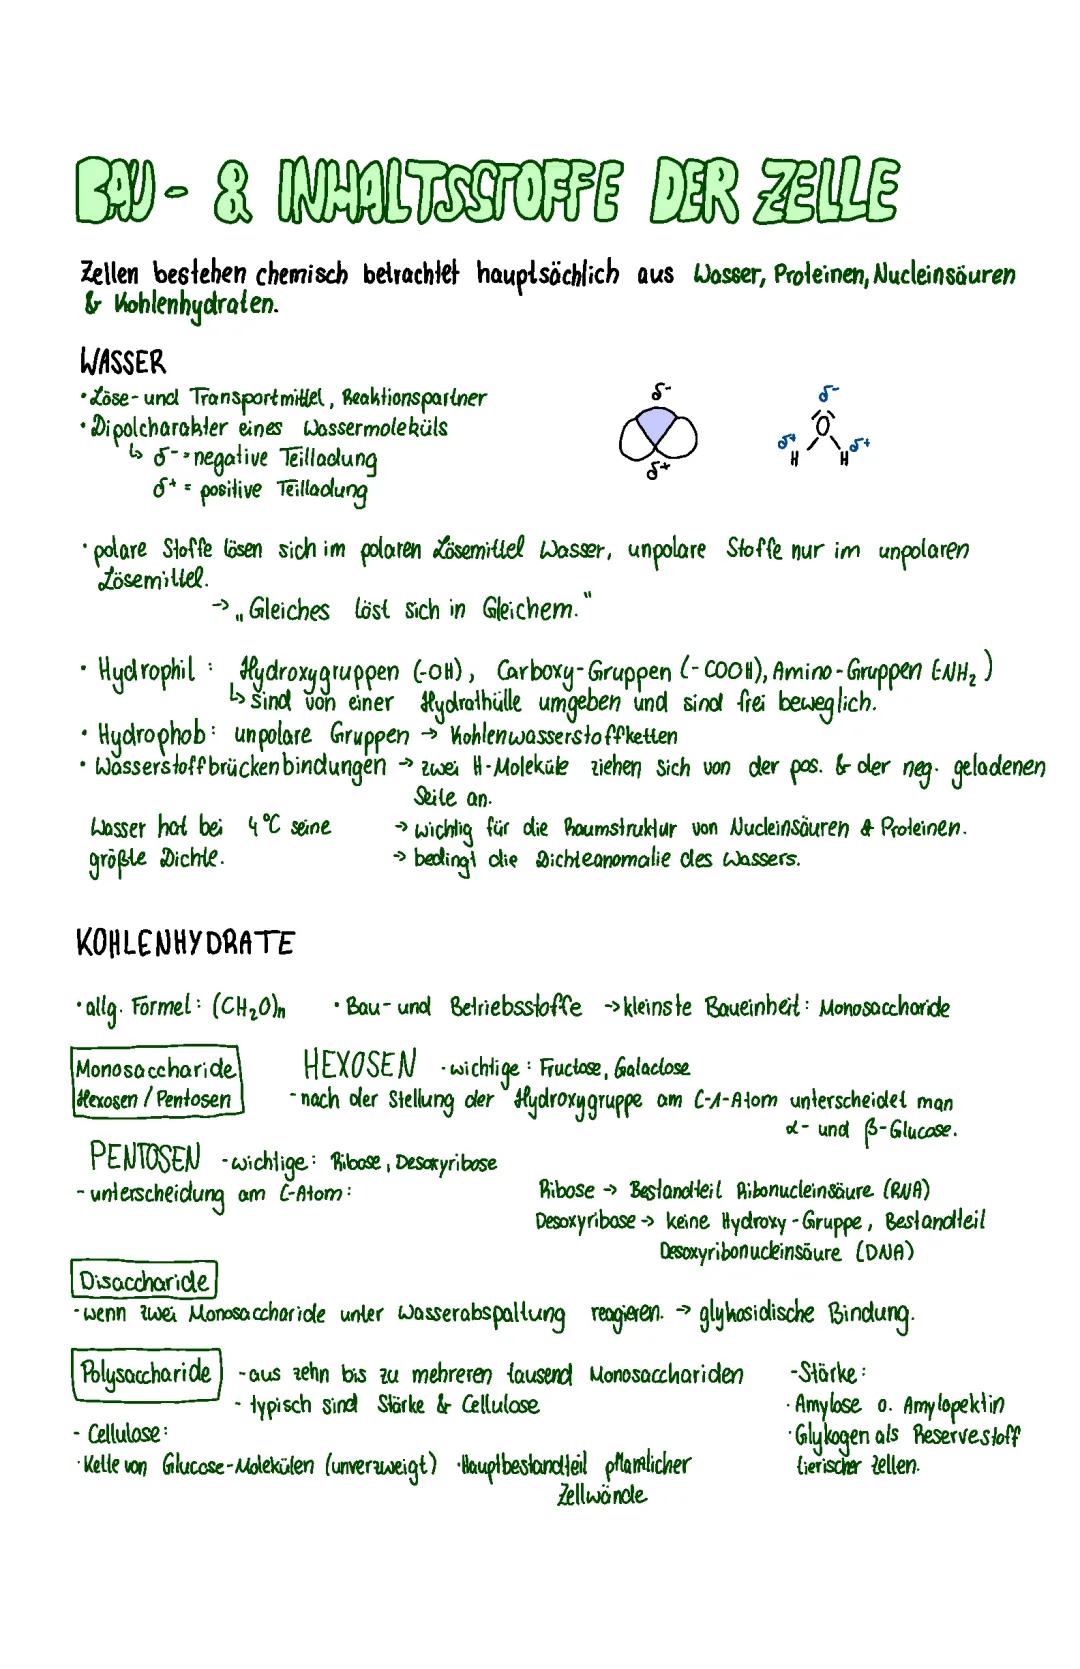 BAU- & INHALTSSTOFFE DER ZELLE
Zellen bestehen chemisch betrachtet hauptsächlich aus Wasser, Proteinen, Nucleinsäuren
& Kohlenhydraten.
WASSER
• Löse- und Transportmittel, Reaktionspartner
• Dipolcharakter eines Wassermoleküls
↳ δ- = negative Teilladung
δ+ = positive Teilladung
δ-
δ+
δ-
O
δ+ δ+
H H
• polare Stoffe lösen sich im polaren Lösemittel Wasser, unpolare Stoffe nur im unpolaren
Lösemittel.
→ „Gleiches löst sich in Gleichem."
• Hydrophil: Hydroxygruppen (-OH), Carboxy-Gruppen (-COOH), Amino-Gruppen (-NH₂)
↳ sind von einer Hydrathülle umgeben und sind frei beweglich.
• Hydrophob: unpolare Gruppen → Kohlenwasserstoffketten
• Wasserstoffbrückenbindungen → zwei H-Moleküle ziehen sich von der pos. & der neg. geladenen
Seite an.
Wasser hat bei 4°C seine → wichtig für die Raumstruktur von Nucleinsäuren & Proteinen.
größte Dichte. → bedingt die Dichteanomalie des Wassers.
KOHLENHYDRATE
• allg. Formel: (CH₂O)n • Bau- und Betriebsstoffe → kleinste Baueinheit: Monosaccharide
Monosaccharide HEXOSEN - wichtige: Fructose, Galactose
Hexosen / Pentosen - nach der Stellung der Hydroxygruppe am C-1-Atom unterscheidet man
α- und β-Glucose.
PENTOSEN - wichtige: Ribose, Desoxyribose
- unterscheidung am C-Atom: Ribose → Bestandteil Ribonucleinsäure (RNA)
Desoxyribose → keine Hydroxy-Gruppe, Bestandteil
Desoxyribonucleinsäure (DNA)
Disaccharide
- wenn zwei Monosaccharide unter Wasserabspaltung reagieren. → glykosidische Bindung.
Polysaccharide - aus zehn bis zu mehreren tausend Monosacchariden - Stärke:
- typisch sind Stärke & Cellulose · Amylose o. Amylopektin
- Cellulose: · Glykogen als Reservestoff
· Kette von Glucose-Molekülen (unverzweigt) · Hauptbestandteil pflanzlicher tierischer Zellen.
Zellwände